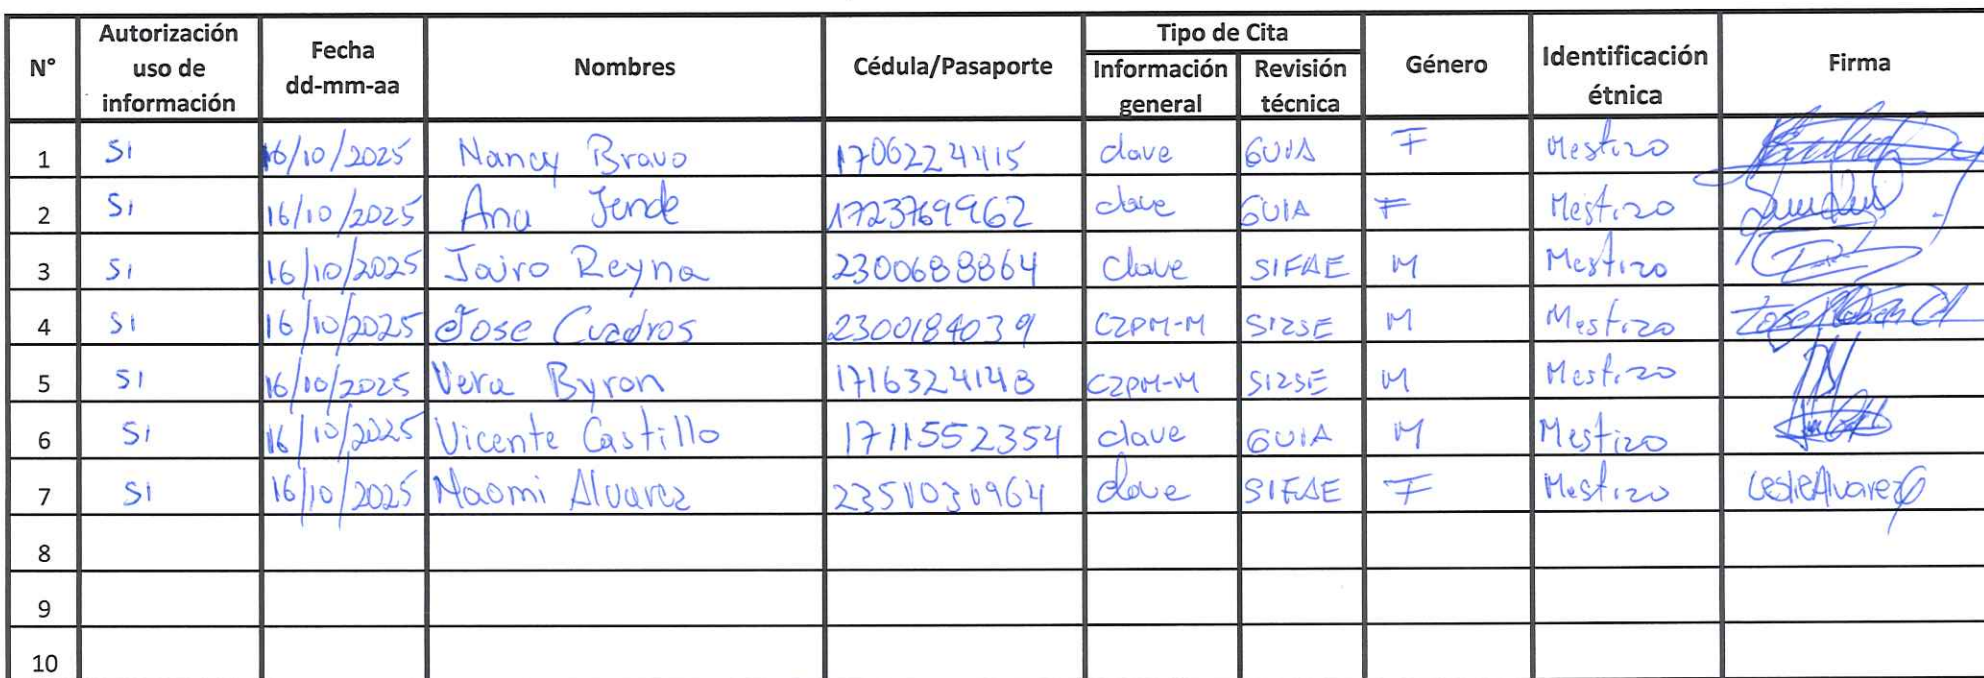 N° Autorización uso de información Fecha dd-mm-aa Nombres Cédula/Pasaporte Tipo de Cita Información general Revisión técnica Género Identificación étnica Firma
1 SI 16/10/2025 Nancy Bravo 1706224415 clave GUIA F Mestizo
2 SI 16/10/2025 Ana Jende 1723769962 clave GUIA F Mestizo
3 SI 16/10/2025 Jairo Reyna 2300688864 clave SIFAE M Mestizo
4 SI 16/10/2025 Jose Cuadros 2300184039 CZPM-M SIZSE M Mestizo
5 SI 16/10/2025 Vera Byron 1716324148 CZPM-M SIZSE M Mestizo
6 SI 16/10/2025 Vicente Castillo 1711552354 clave GUIA M Mestizo
7 SI 16/10/2025 Naomi Alvarez 2351031964 clave SIFAE F Mestizo Leslie Alvarez
8
9
10